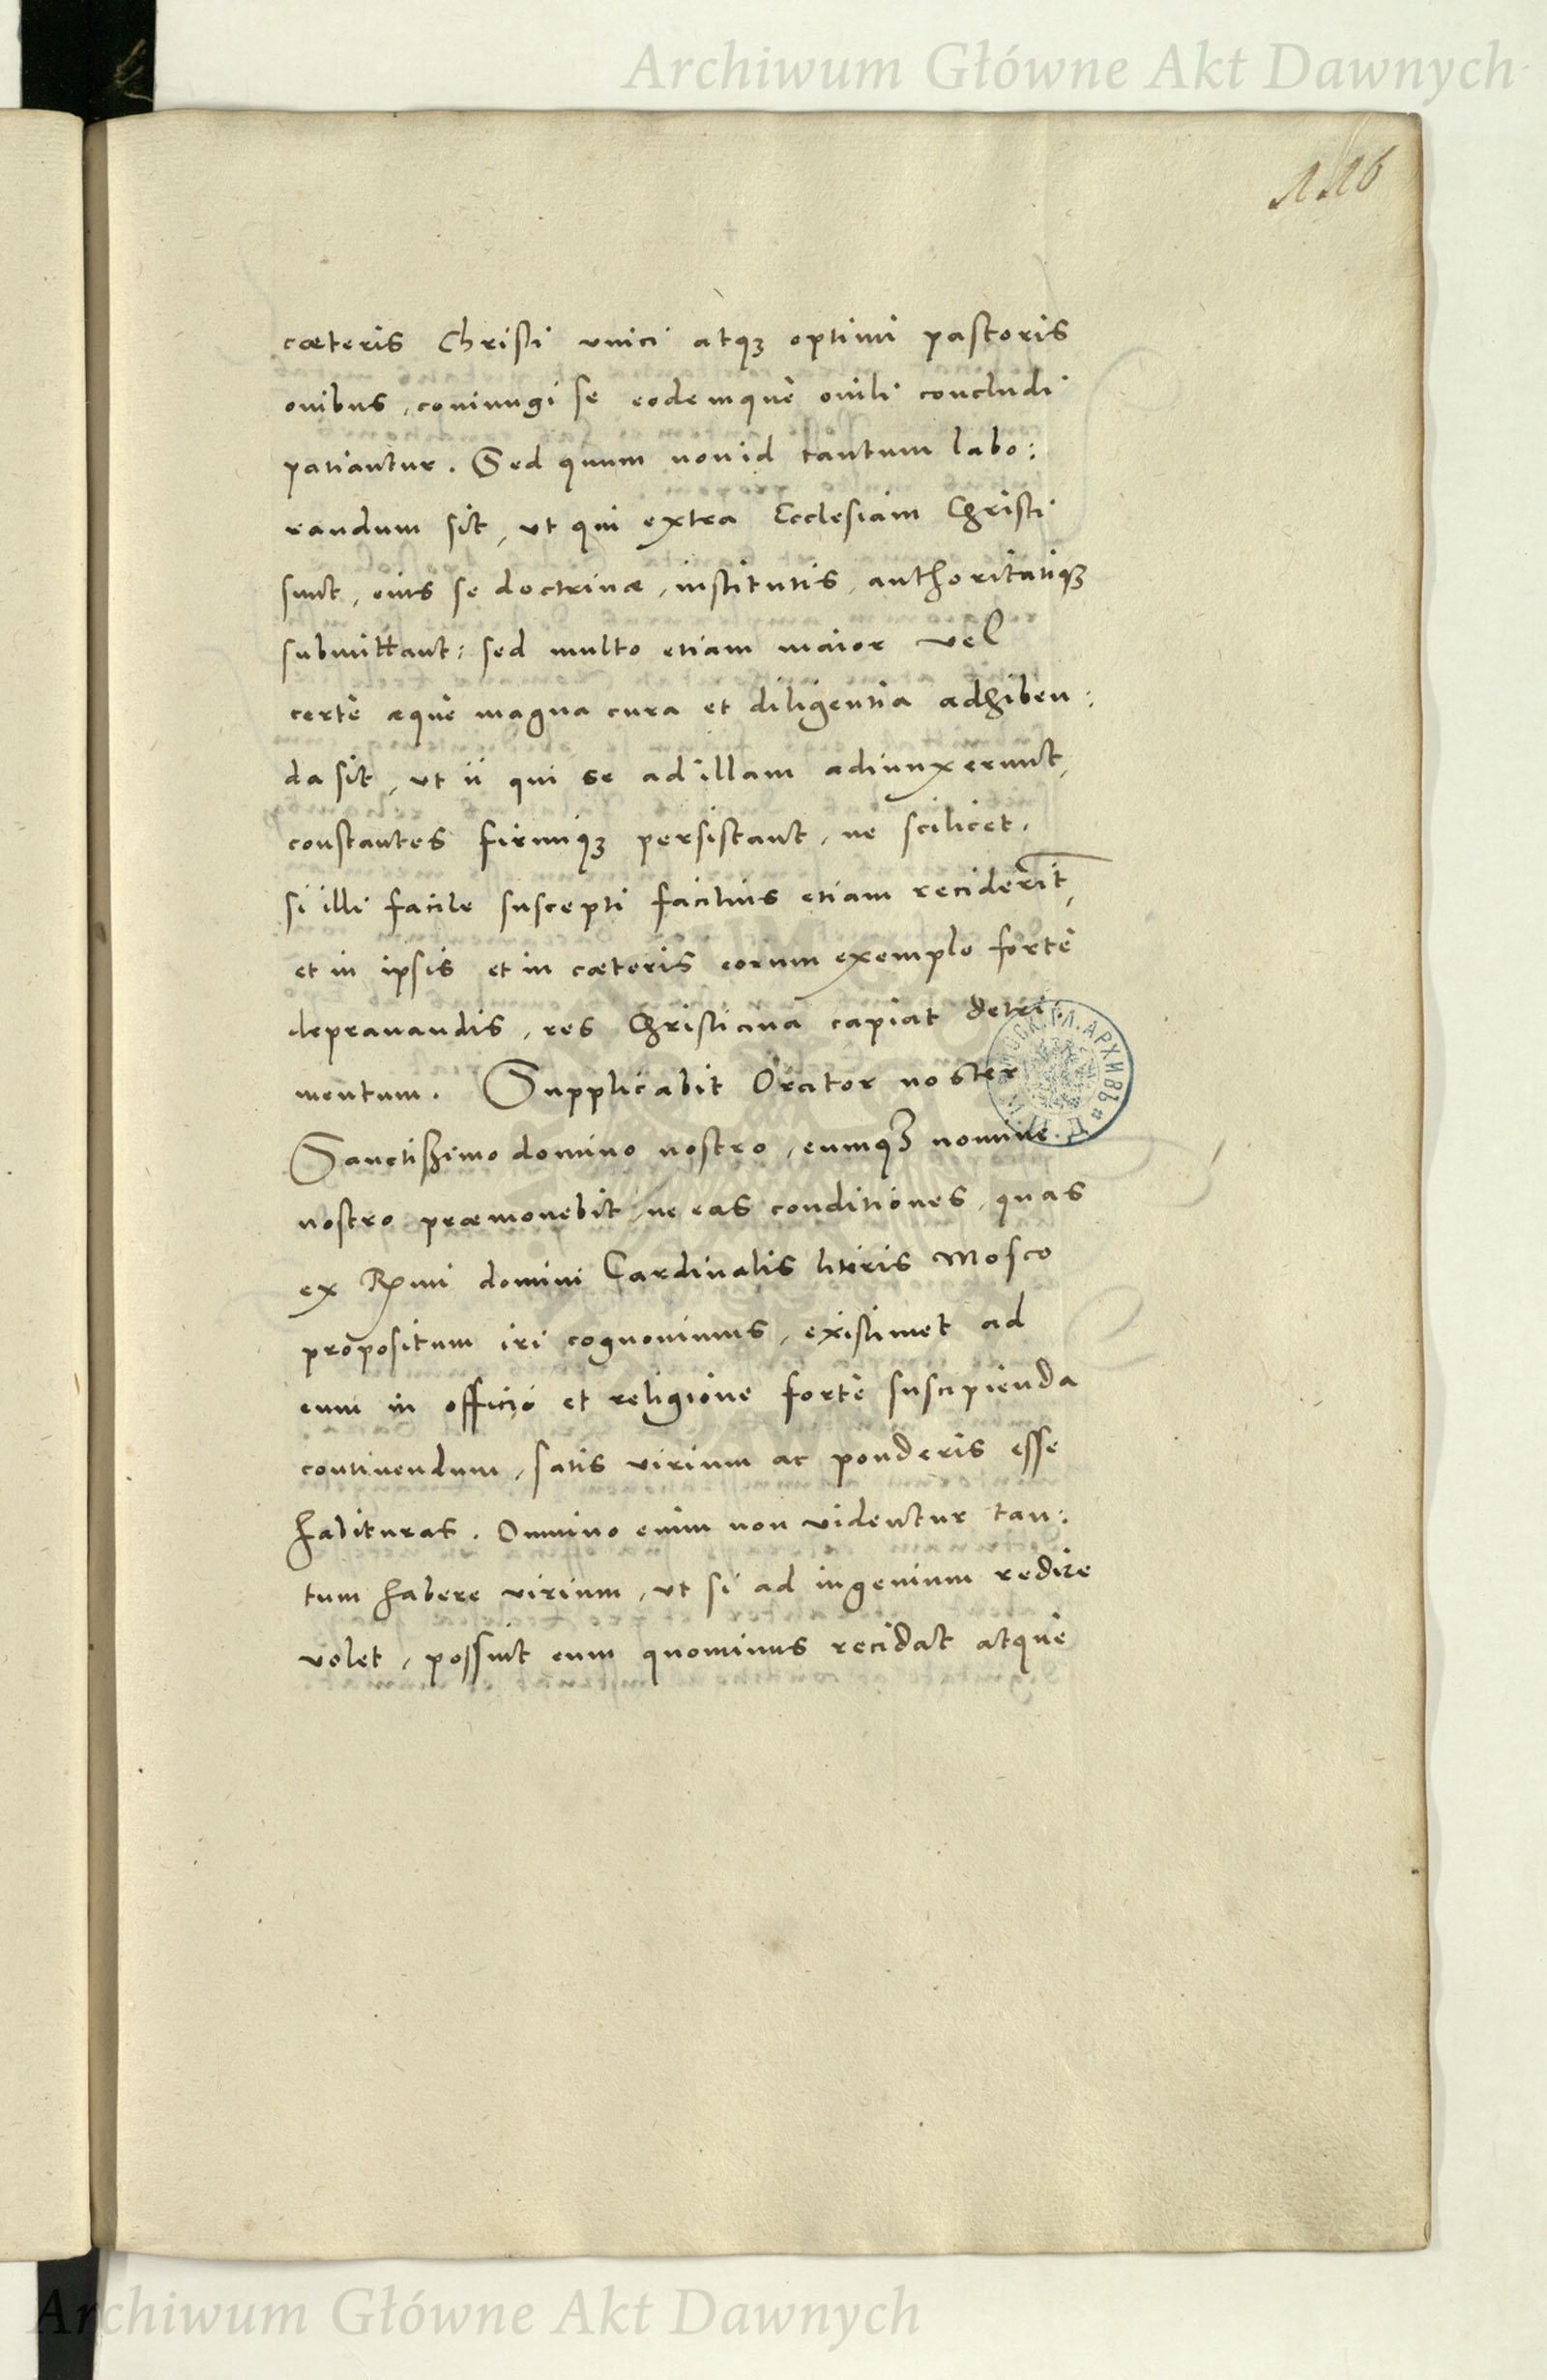 Archiwum Główne Akt Dawnych
116
cæteris Christi vnici atqꝫ optimi pastoris
ouibus, coniungi se eodemquè ouili concludi
patiantur. Sed quum non id tantum labo:
randum sit, vt qui extra Ecclesiam Christi
sunt, eius se doctrinæ, institutis, authoritatiqꝫ
submittant: sed multo etiam maior vel
certè æquè magna cura et diligentia adhiben:
da sit, vt ii qui se ad illam adiunxerunt,
constantes firmiqꝫ persistant, ne scilicet,
si illi facile suscepti facilius etiam reciderīt,
et in ipsis et in cæteris eorum exemplo fortè
deprauandis, res Christiana capiat detri:
mentum. Supplicabit Orator noster
Sanctißimo domino nostro, eumqꝫ nomine
nostro præmonebit, ne eas conditiones, quas
ex Rmi domini Cardinalis literis Mosco
propositum iri cognouimus, existimet ad
eum in officio et religione fortè suscipienda
continendum, satis virium ac ponderis esse
habituras. Omnino enim non videntur tan:
tum habere virium, vt si ad ingenium redire
volet, possint eum quominus recidat atquè
Archiwum Główne Akt Dawnych